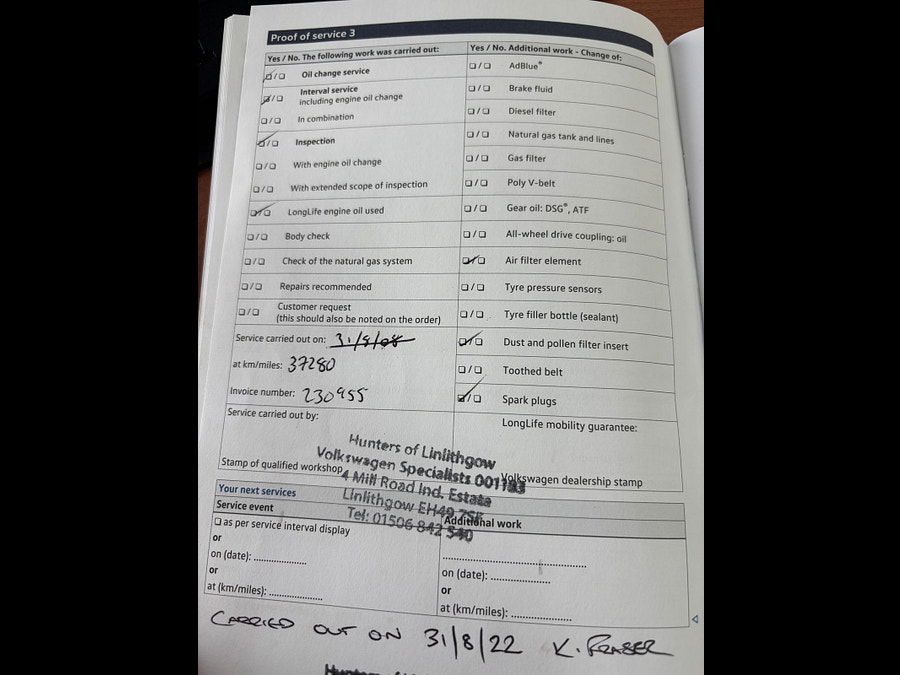 Proof of service 3
Yes / No. The following work was carried out:
☑/☐ Oil change service
☑/☐ Interval service
including engine oil change
☐/☐ In combination
☑/☐ Inspection
☐/☐ With engine oil change
☐/☐ With extended scope of inspection
☑/☐ LongLife engine oil used
☐/☐ Body check
☐/☐ Check of the natural gas system
☐/☐ Repairs recommended
☐/☐ Customer request
(this should also be noted on the order)
Service carried out on: 31/8/08
at km/miles: 37280
Invoice number: 230955
Service carried out by:
Stamp of qualified workshop
Yes / No. Additional work - Change of:
☐/☐ AdBlue®
☐/☐ Brake fluid
☐/☐ Diesel filter
☐/☐ Natural gas tank and lines
☐/☐ Gas filter
☐/☐ Poly V-belt
☐/☐ Gear oil: DSG®, ATF
☐/☐ All-wheel drive coupling: oil
☑/☐ Air filter element
☐/☐ Tyre pressure sensors
☐/☐ Tyre filler bottle (sealant)
☑/☐ Dust and pollen filter insert
☐/☐ Toothed belt
☑/☐ Spark plugs
LongLife mobility guarantee:
Volkswagen dealership stamp
Hunters of Linlithgow
Volkswagen Specialists
4 Mill Road Ind. Estate
Linlithgow EH49 7SF
Tel: 01506 842 540
Your next services
Service event
☐ as per service interval display
or
on (date): ......................
or
at (km/miles): ......................
Additional work
............................................................
on (date): ......................
or
at (km/miles): ......................
CARRIED OUT ON 31/8/22 K. FRASER